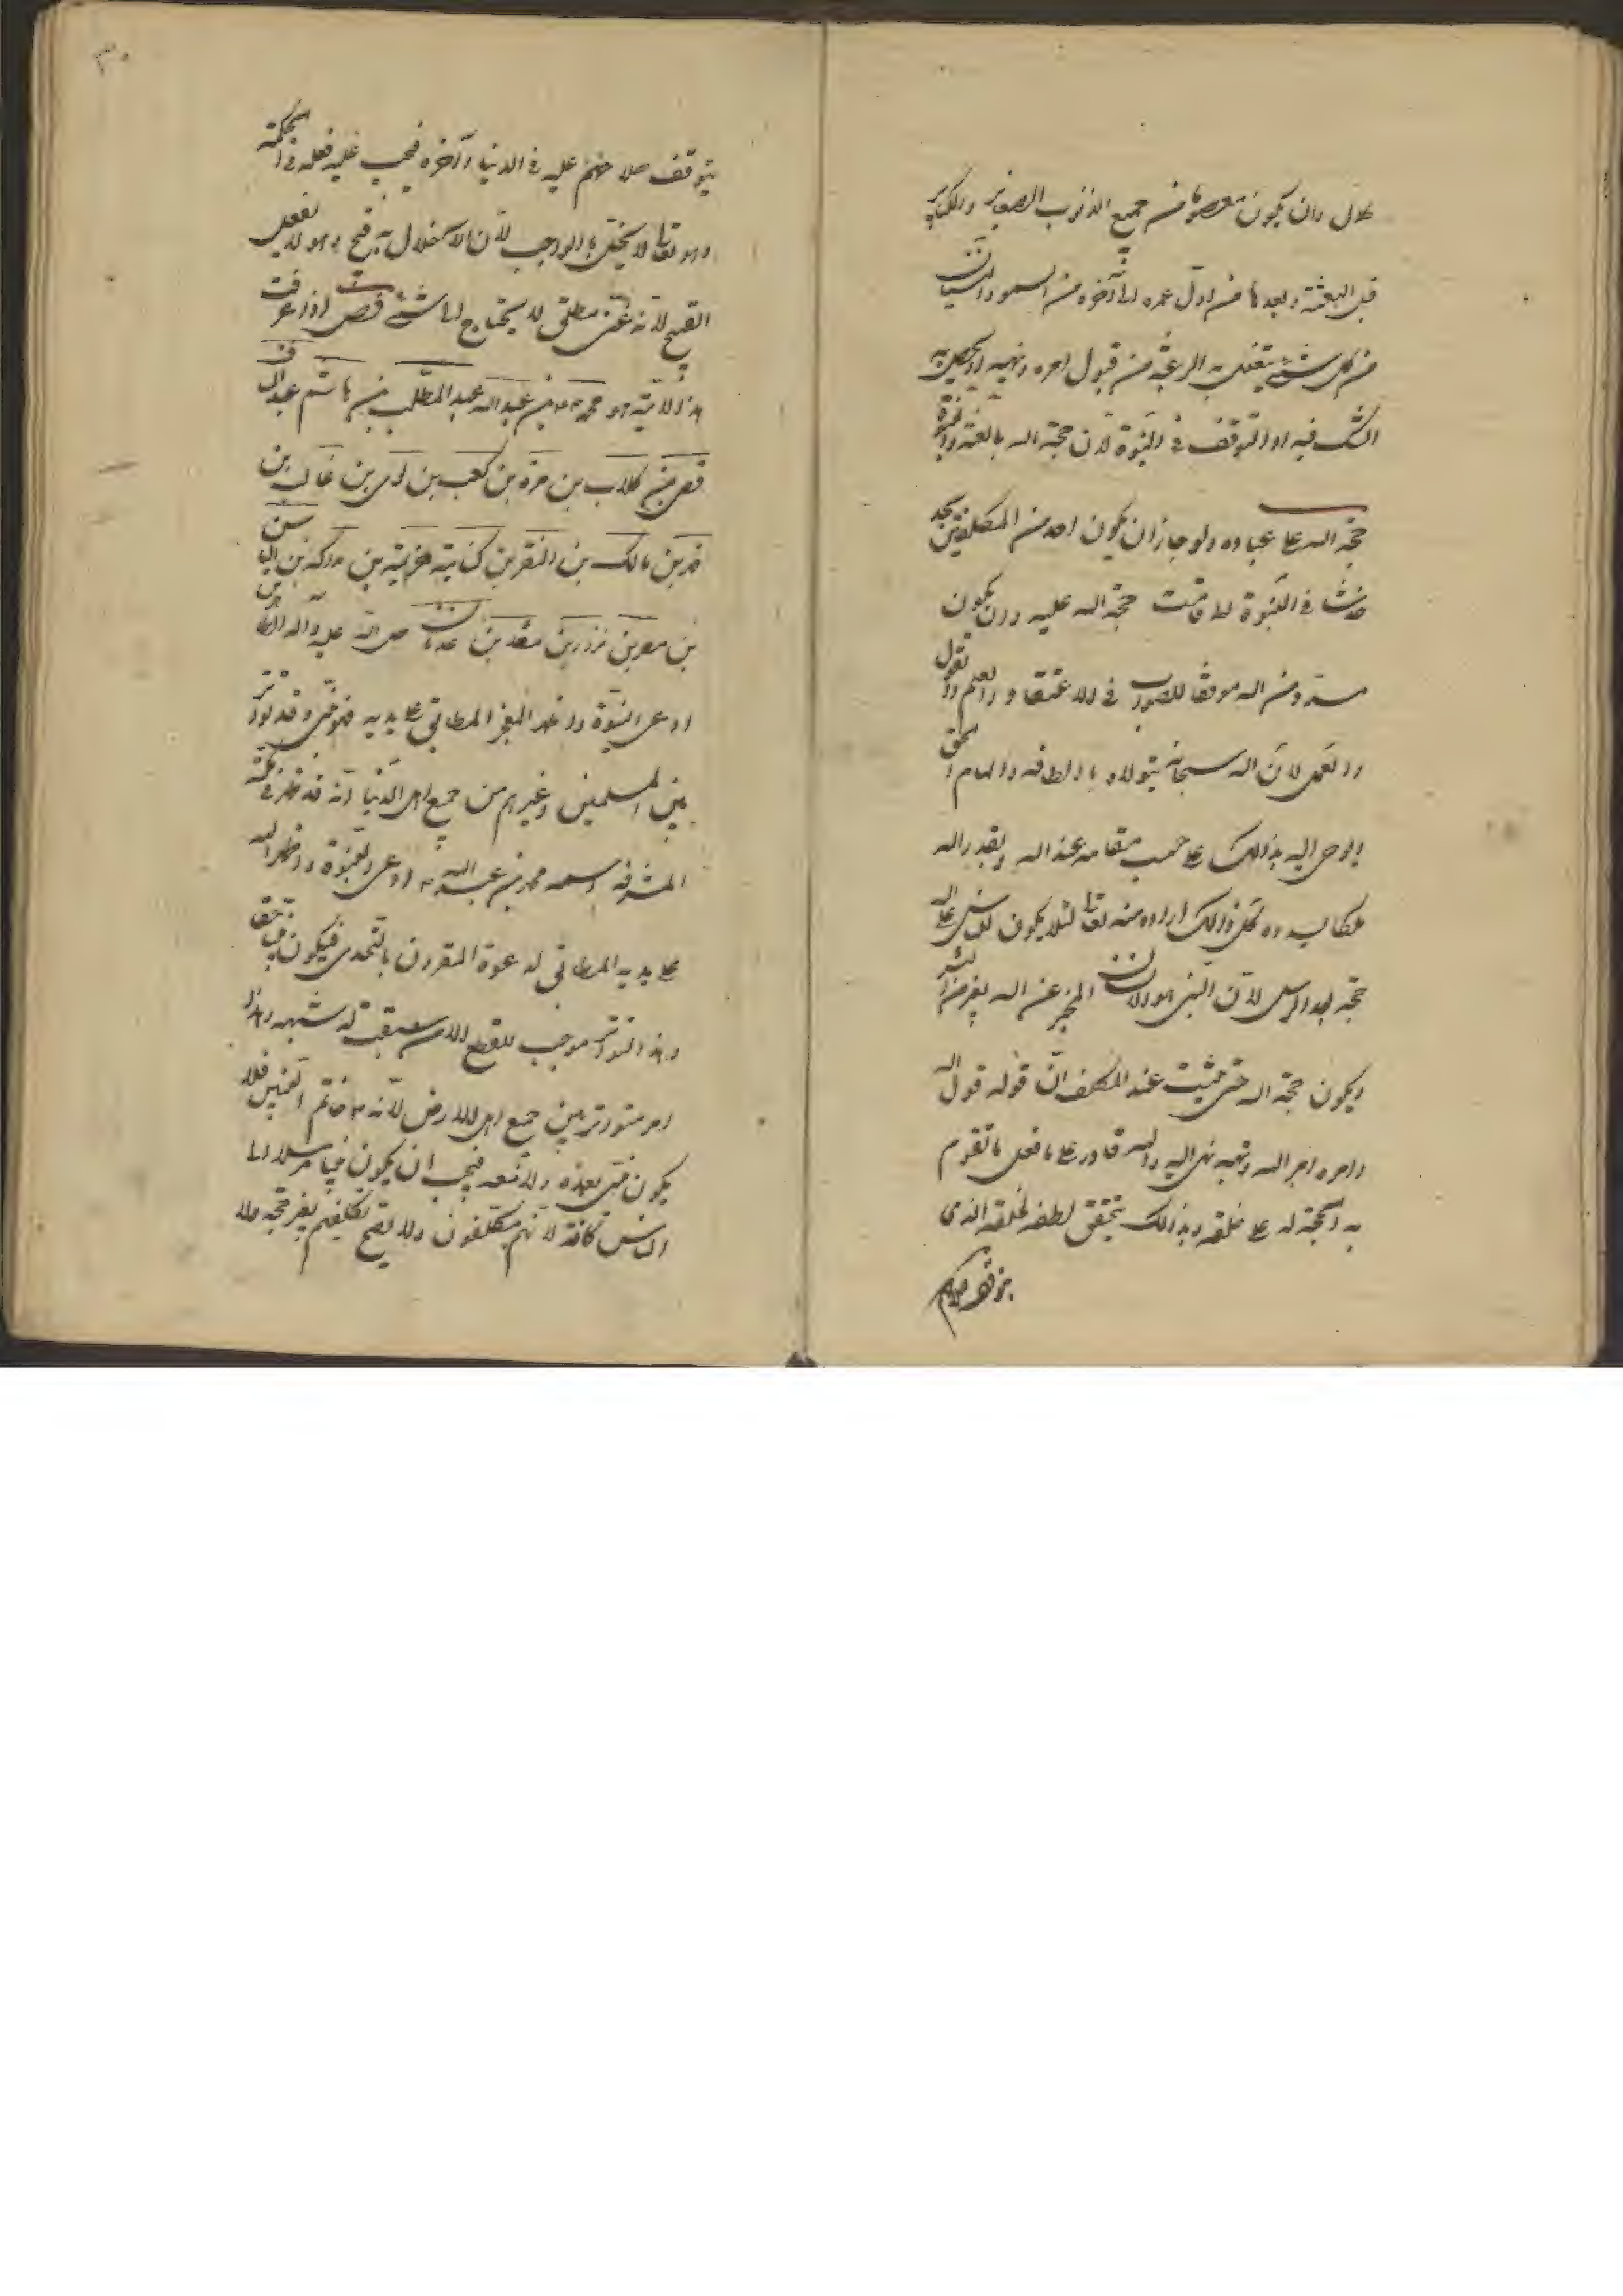 حال وان يكون معصوما من جميع الذنوب الصغاير والكباير
قبل البعثة وبعدها من اول عمره الى آخره من السهو والنسيان
من كل شئ يتعلق به الرعية من قبول امره ونهيه او يحصل به
الشك فيه او التوقف فى النبوة لان حجة الله بالغة والنبوة
حجة الله على عباده ولو جاز ان يكون احد من المكلفين يجد
خدشا فى النبوة لما قامت حجة الله عليه وان يكون
مسددا من الله موفقا للصواب فى الاعتقاد والعلم والقول
والعمل لان الله سبحانه يتولاه بالطافه والهام الحق
ويوحى اليه بذالك على حسب مقامه عند الله ويقدر الله
ملكا يسدده كل ذالك اراده منه تعالى لئلا يكون للناس على الله
حجة بعد الرسل لان النبى هو الانسان المخبر عن الله بغير من البشر
ويكون حجة الله حتى يثبت عند المكلف ان قوله قول الله
وامره امر الله ونهيه نهى الله والله قادر على ما فعل ما تقوم
به الحجة له على خلقه وبذالك يتحقق لطفه لخلقه الذى
يتوقف صلاحهم
٣٠
يتوقف صلاحهم عليه فى الدنيا وآخره فيجب عليه فعله فى الحكمة
وهو تعالى لا يخل بالواجب لان الاخلال به قبيح وهو لا يفعل
القبيح لانه غنى مطلق لا يحتاج الى شئ فصل اذا عرفت
هذا لامة هو محمد ص بن عبد الله عبد المطلب بن هاشم عبد مناف
قصى بن كلاب بن مرة بن كعب بن لوى بن غالب بن
فهر بن مالك بن النضر بن كنانية خزيمة بن مدركة بن الياس بن
بن مضر بن نزار بن معد بن عدنان صلى الله عليه واله
ادعى النبوة واظهر المعجز المطابق على يديه فهو نبى وقد تواتر
بين المسلمين وغيرهم من جميع اهل الدنيا انه قد ظهر فى مكة
المشرفة اسمه محمد بن عبد الله ص ادعى النبوة واظهر الله
على يديه المطابق لدعوة المقرون بالتحدى فيكون نبيا حقا
وهذا التواتر موجب للقطع الا من سبقت له شبهه وهذا
امر متواتر بين جميع اهل الارض لانه ص خاتم النبيين فلا
يكون نبى بعده ولا معه فيجب ان يكون نبيا مرسلا الى
الناس كافة لانهم مكلفون ولا يصح تكليفهم بغير حجة ولا